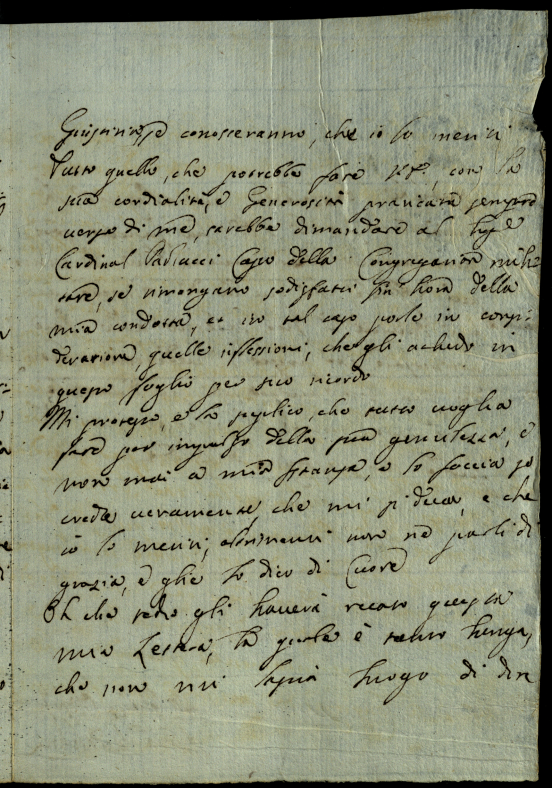 Giustizia, se conosceranno, che io lo meriti
Tutto quello, che potrebbe fare V.S., con la
sua cordialità, e Generosità praticata sempre
verso di me, sarebbe dimandare al Sigr
Cardinal Paolucci Capo della Congregatione mili-
tare, se rimangano sodisfatti fin hora della
mia condotta, et in tal caso porle in consi-
deratione, quelle riflessioni, che gli achudo in
questo foglio per suo ricordo
Mi protesto, e la suplico, che tutto voglia
fare per impulso della sua gentilezza, e
non mai a mia istanza, e lo faccia se
crede veramente, che mi si deva, e che
io lo meriti, altrimenti non ne parli di
grazia, e glie lo dico di Cuore
Oh che tedio gli haverà recato questa
mia Lettera, la quale è tanto lunga,
che non mi lascia luogo di dire